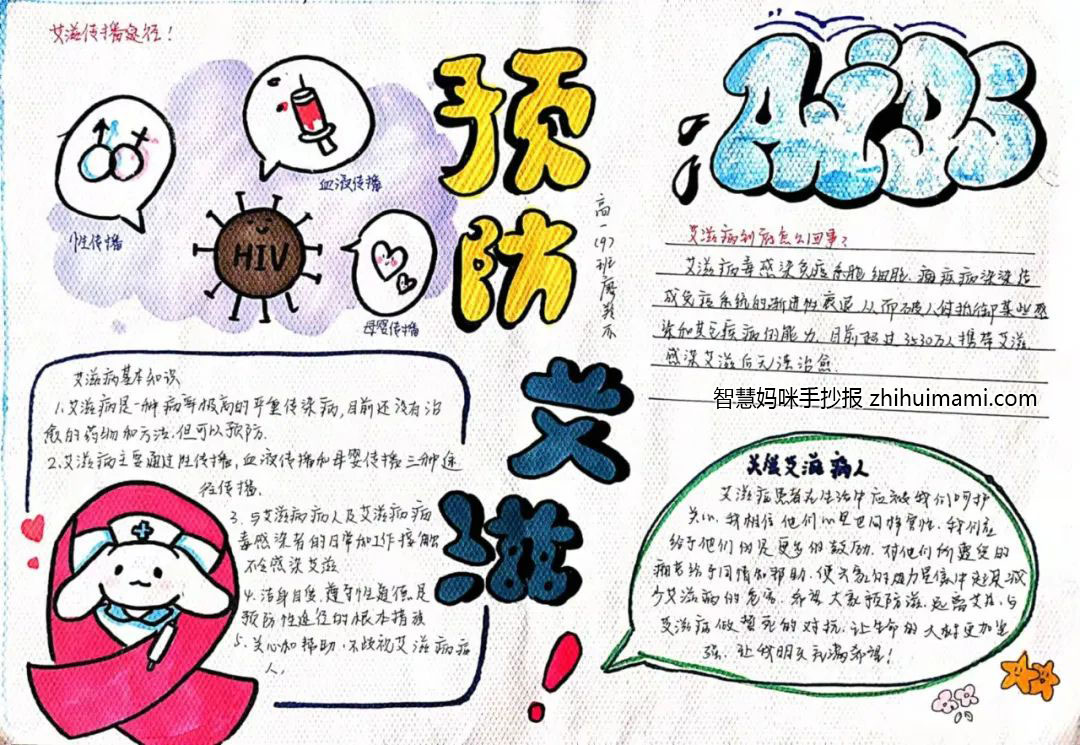 艾滋传播途径！
血液传播
性传播
HIV
母婴传播
预
防
艾
滋！
高一(9)班廖
AiDS
艾滋病到底怎么回事？
艾滋病毒感染免疫系胞细胞
成免疫系统的渐进性衰退从而破人体抵御某些感
染和其它疾病的能力．目前超过3530万人携带艾滋
感染艾滋后无法治愈．
智慧妈咪手抄报 zhihuimami.com
艾滋病基本知识
1．艾滋病是一种病毒极高的严重传染病，目前还没有治
愈的药物和方法．但可以预防．
2．艾滋病主要通过性传播，血液传播和母婴传播三种途
径传播．
3．与艾滋病病人及艾滋病病
毒感染者的日常和工作接触
不会感染艾滋
4．洁身自爱，遵守性道德是
预防性途径的根本措施
5．关心和帮助，不歧视艾滋病病
人．
关爱艾滋病人
艾滋症患者在生活中应被我们呵护
关心．我相信他们
给予他们的是更多的鼓励．对他们所遭受的
病给予同情和帮助．
少艾滋病的危害．希望大家预防滋．
艾滋病做的对抗．让生命的更加坚
强．让我明天充满希望！